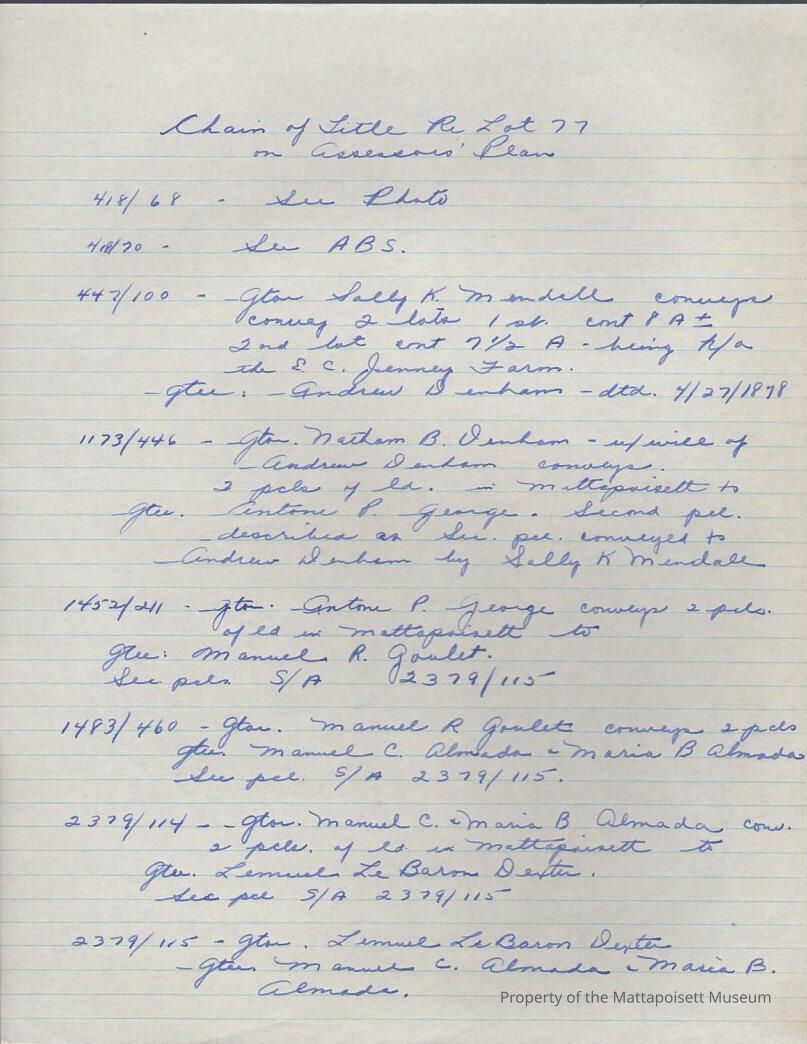 Chain of Title Re Lot 77
on Assessors' Plan
418/68 - See Photo
418/70 - See ABS.
447/100 - Gtor Sally K. Mendell conveys
convey 2 lots 1 st. cont 8 A ±
2nd lot cont 7 1/2 A - being k/a
the E. C. Jenney Farm.
- gtee: - Andrew Denham - dtd. 4/27/1878
1173/446 - Gtor. Nathan B. Denham - u/will of
Andrew Denham conveys.
2 pcls of ld. in Mattapoisett to
gtee. Antone P. George. Second pcl.
described as Sec. pcl. conveyed to
Andrew Denham by Sally K Mendall
1452/211 - gtor. Antone P. George conveys 2 pcls.
of ld in Mattapoisett to
Gtee: Manuel R. Goulet.
Sec pcls S/A 2379/115
1483/460 - Gtor. Manuel R Goulet conveys 2 pcls
gtee. Manuel C. Almada & Maria B Almada
Sec pcl. S/A 2379/115.
2379/114 - - Gtor. Manuel C. & Maria B Almada conv.
2 pcls. of ld in Mattapoisett to
Gtee. Lemuel Le Baron Dexter.
Sec pcl S/A 2379/115
2379/115 - Gtor. Lemuel LeBaron Dexter
- Gtee. Manuel C. Almada & Maria B.
Almada.
Property of the Mattapoisett Museum